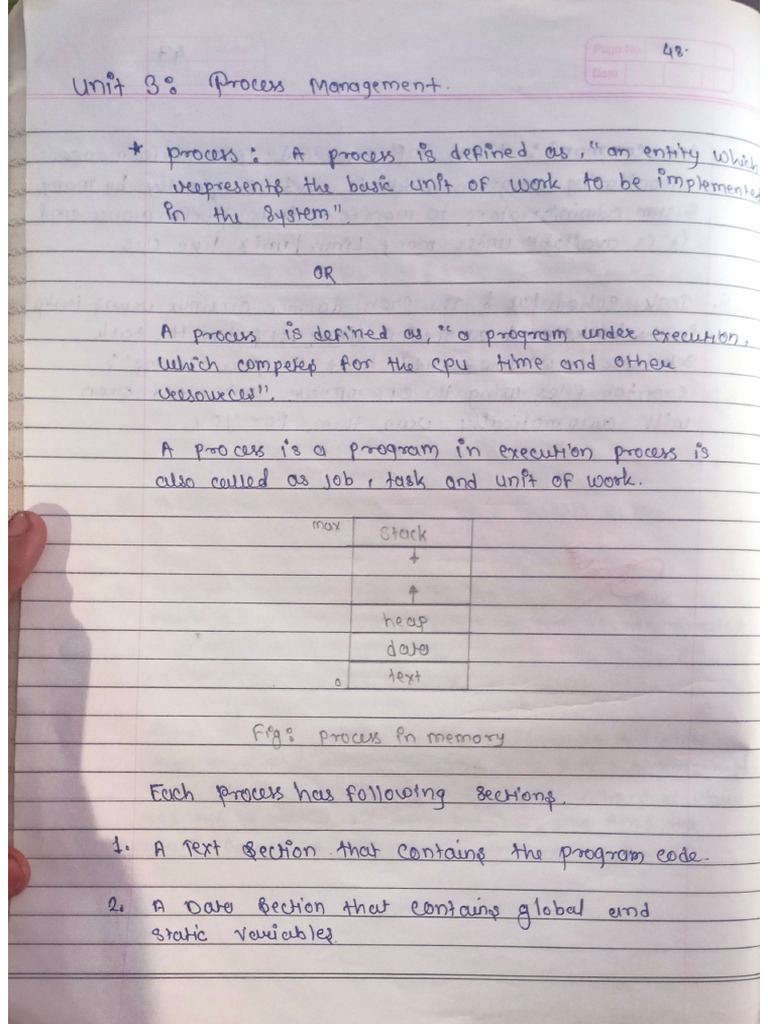 Page No. 48.
Date
Unit 3: Process Management.
* process: A process is defined as, "an entity which
represents the basic unit of work to be implemented
in the system".
OR
A process is defined as, "a program under execution,
which competes for the cpu time and other
resources".
A process is a program in execution process is
also called as job, task and unit of work.
max stack
↓
↑
heap
data
0 text
Fig: process in memory
Each process has following sections.
1. A Text section that contains the program code.
2. A Data section that contains global and
static variables.